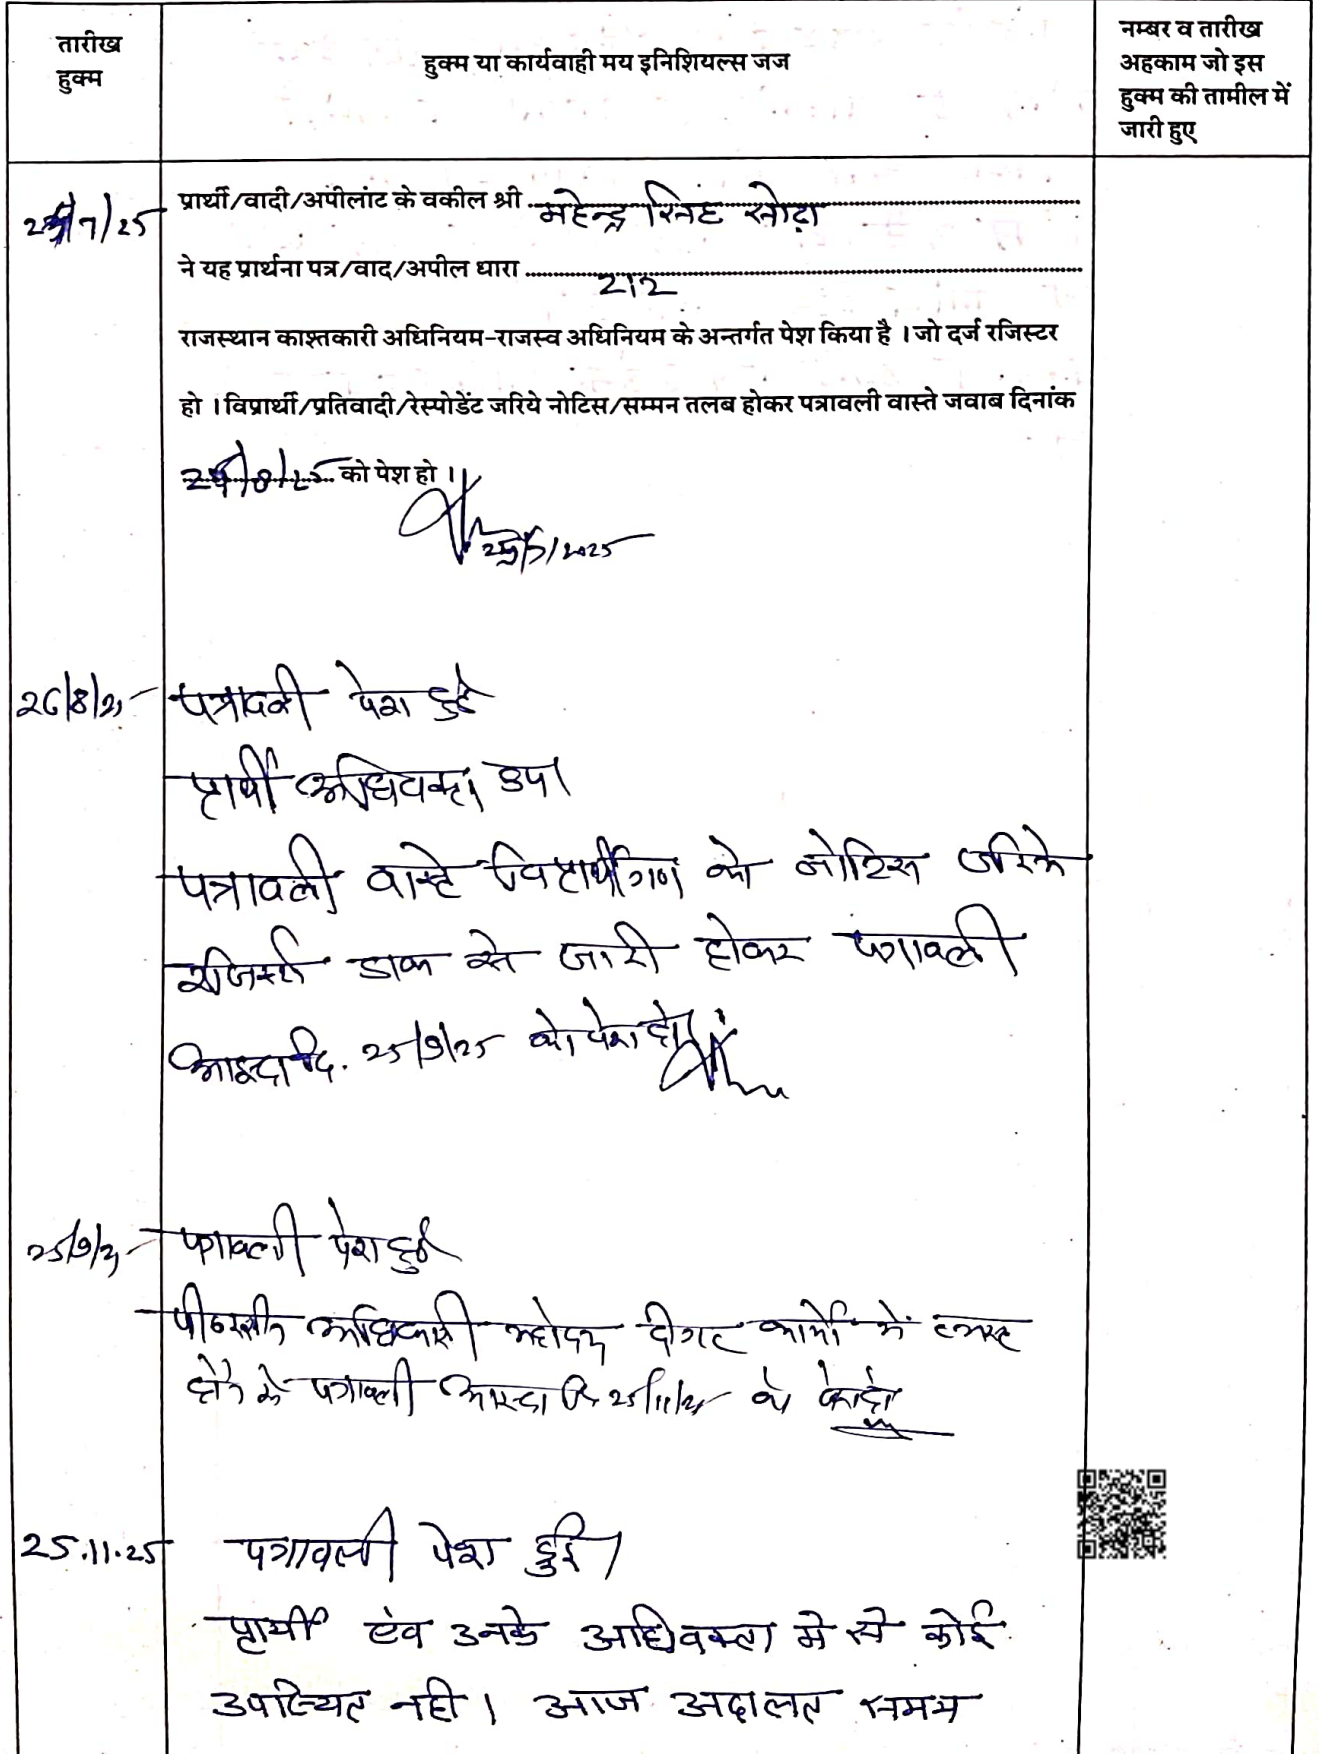 तारीख
हुक्म
हुक्म या कार्यवाही मय इनिशियल्स जज
नम्बर व तारीख
अहकाम जो इस
हुक्म की तामील में
जारी हुए
प्रार्थी/वादी/अपीलांट के वकील श्री महेन्द्र सिंह सोढ़ा
ने यह प्रार्थना पत्र/वाद/अपील धारा 212
राजस्थान काश्तकारी अधिनियम-राजस्व अधिनियम के अन्तर्गत पेश किया है । जो दर्ज रजिस्टर
हो । विप्रार्थी/प्रतिवादी/रेस्पोडेंट जरिये नोटिस/सम्मन तलब होकर पत्रावली वास्ते जवाब दिनांक
को पेश हो ।
पत्रावली पेश हुई
प्रार्थी अधिवक्ता उप।
पत्रावली वास्ते विप्रार्थीगण को नोटिस जरिके
रजिस्टर्ड डाक से जारी होकर पत्रावली
आइन्दा दि. 25/9/25 को पेश हो
पत्रावली पेश हुई
पीठासीन अधिकारी महोदय दीगर कार्यो में व्यस्त
होने से पत्रावली आइन्दा दि 25/11/25 को पेश हो
25.11.25 पत्रावली पेश हुई।
प्रार्थी एंव उनके अधिवक्ता मे से कोई
उपस्थित नही। आज अदालत समय